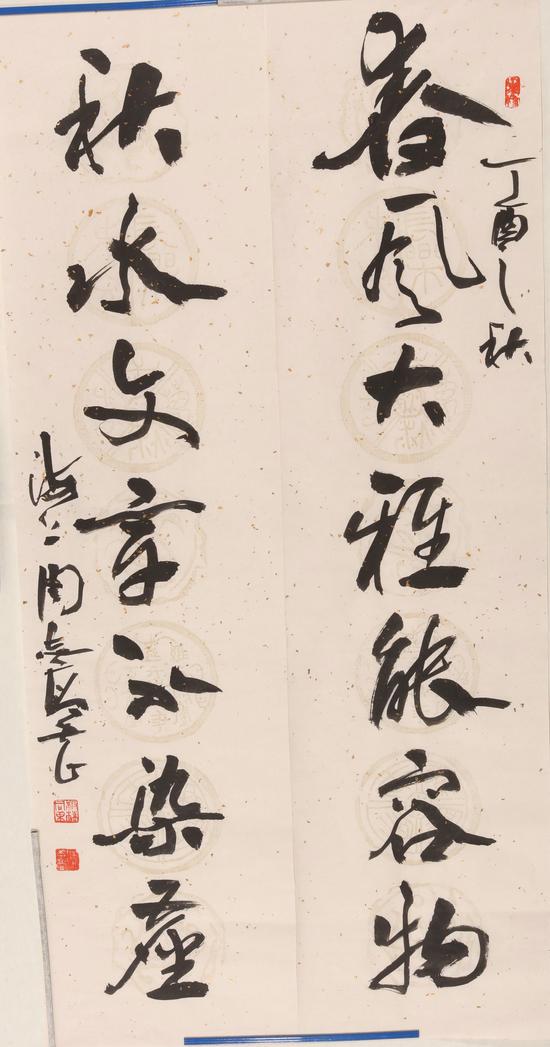 丁酉之秋
春风大雅能容物
秋水文章不染尘
海上周